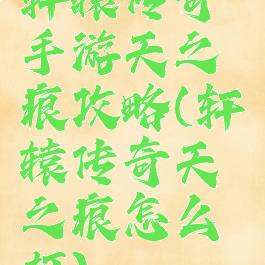 轩辕传奇
手游天之
痕攻略(轩
辕传奇天
之痕怎么
玩)